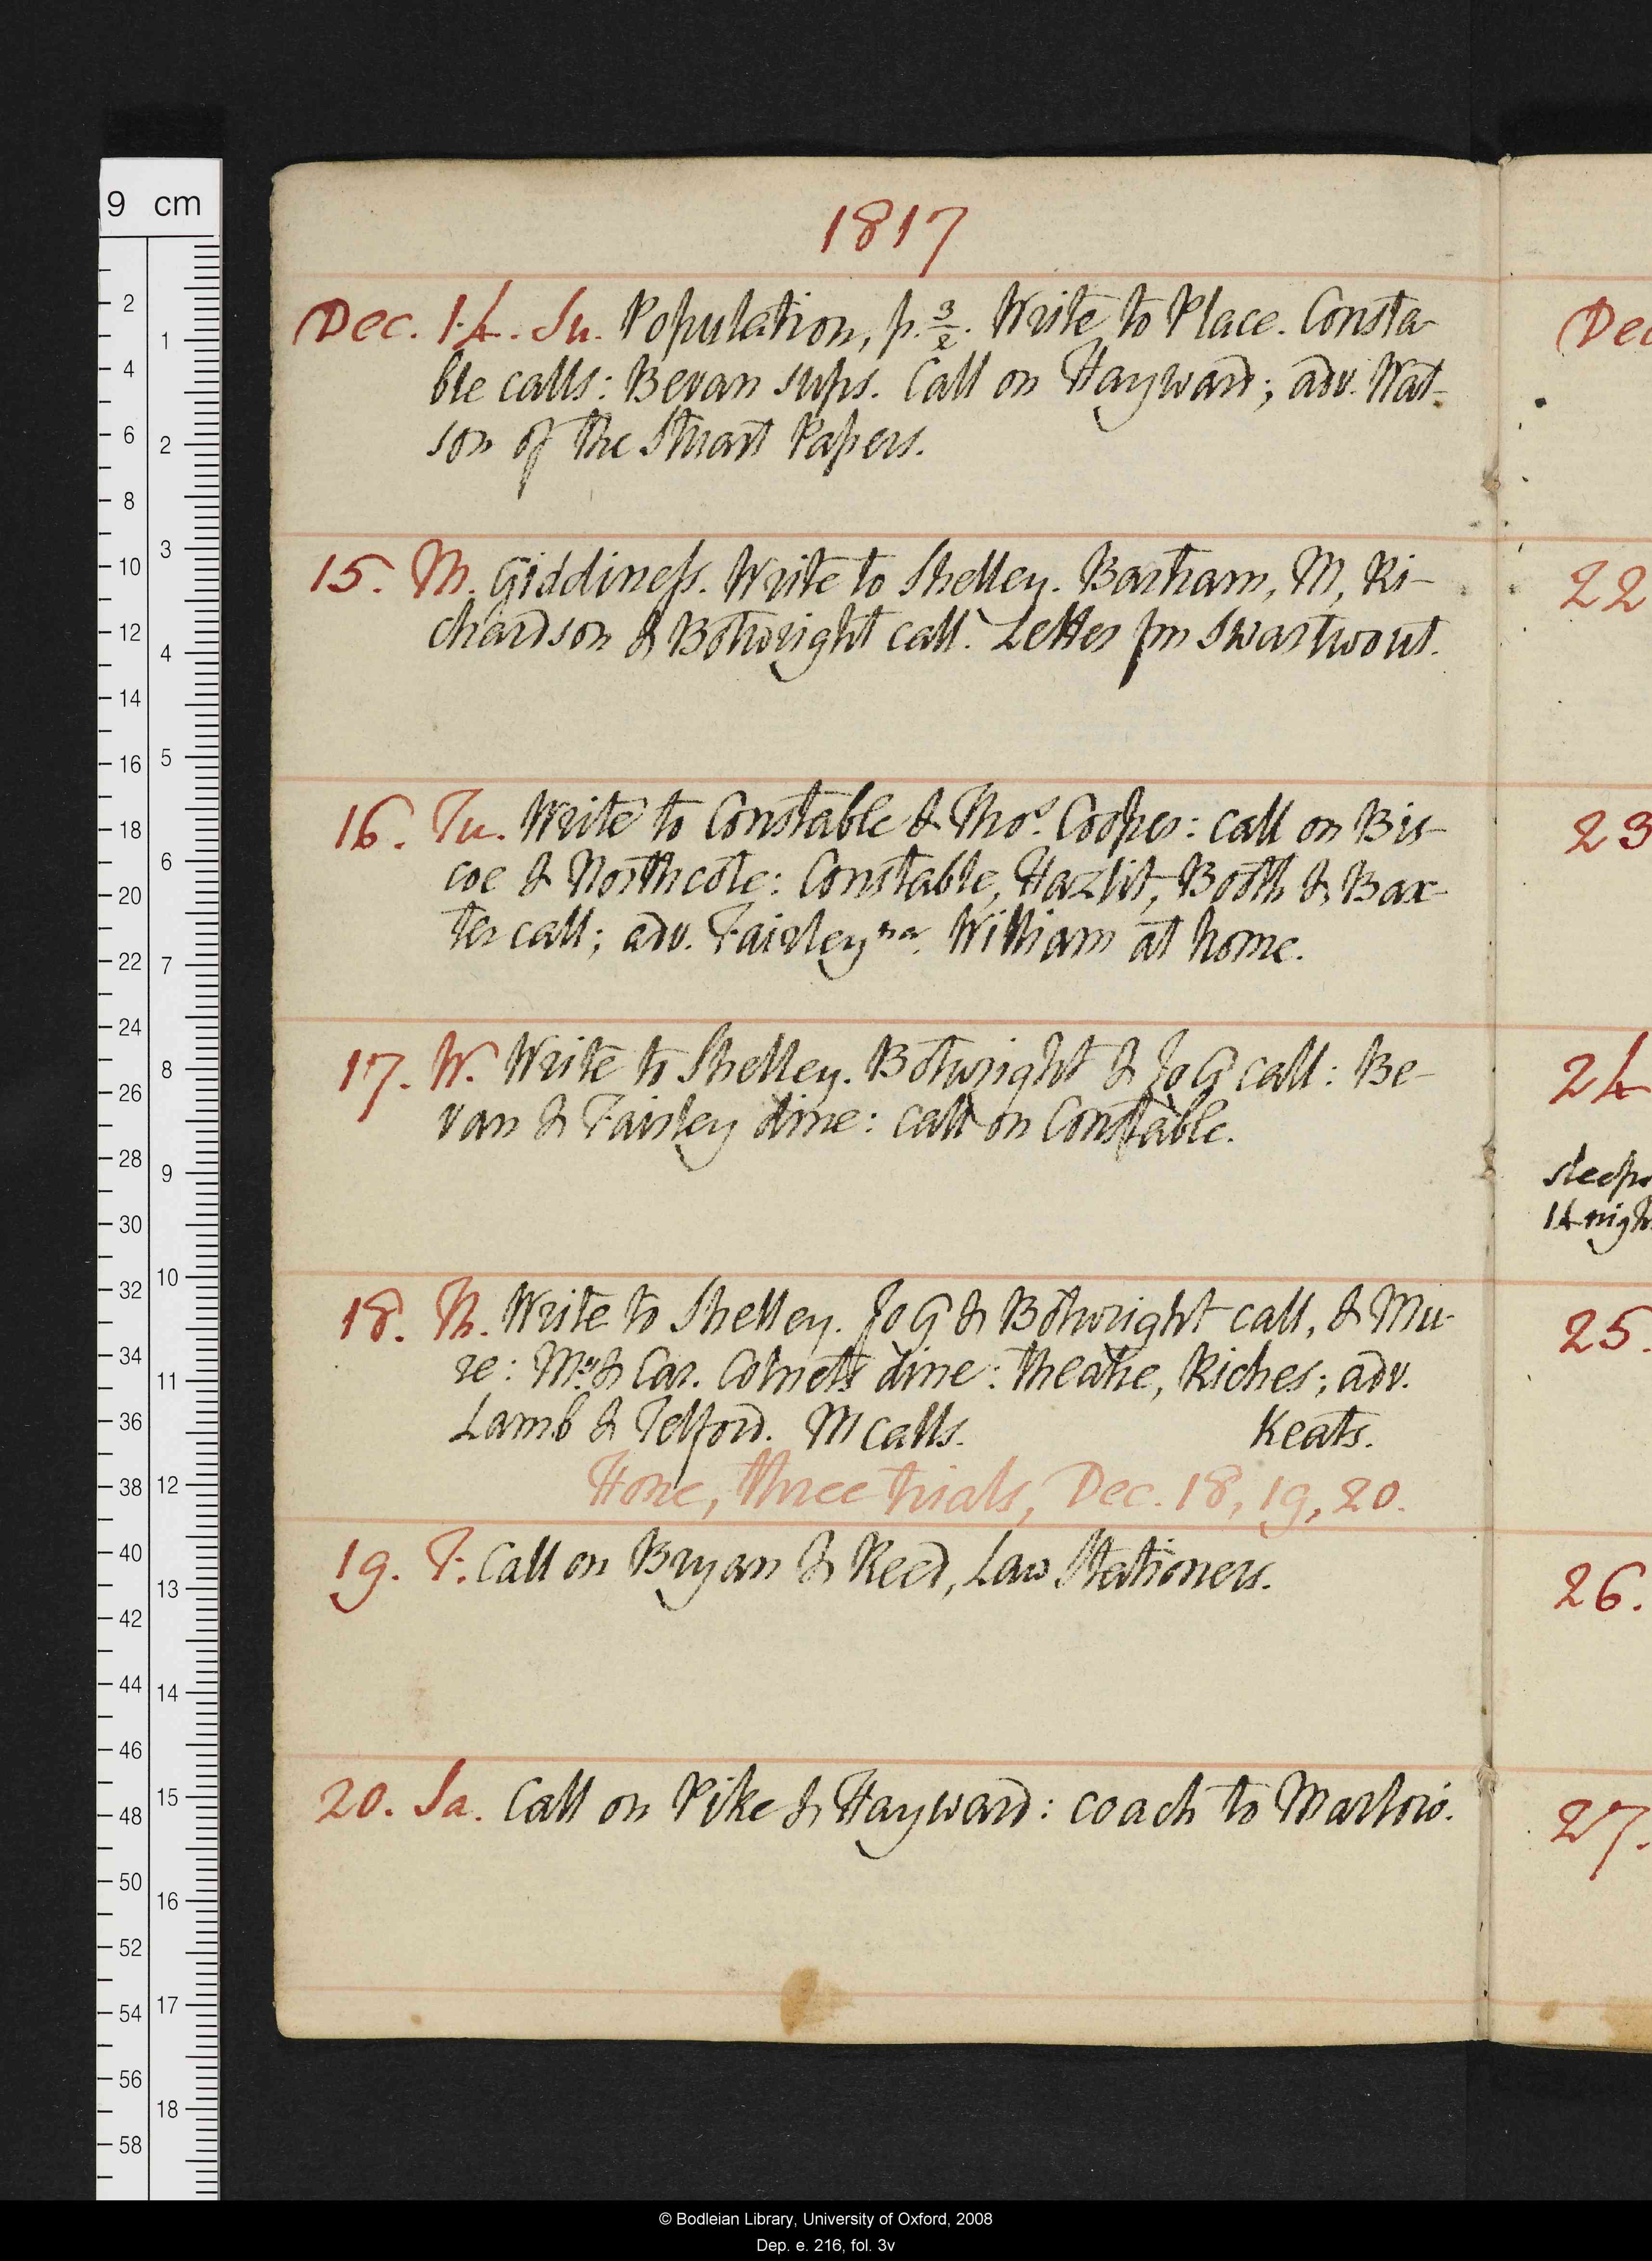 1817
Dec. 14. Su. Population, p. 3/2. Write to Place. Consta-
ble calls: Bevan sups. Call on Hayward; adv. Wat-
son of the Stuart Papers.
15. M. Giddiness. Write to Shelley. Bartram, M, Ri-
chardson & Botwright call. Letter fm Swartwout.
16. Tu. Write to Constable & Thos. Cooper: call on Bis-
coe & Northcote: Constable, Hazlit, Booth & Bax-
ter call; adv. Fairley na. William at home.
17. W. Write to Shelley. Botwright & Jo G call: Be-
van & Fairley dine: call on Constable.
18. Th. Write to Shelley. Jo G & Botwright call, & Mu-
re: & Car. dine: theatre, Riches; adv.
Lamb & Telford. M calls. Keats.
Hone, three trials, Dec. 18, 19, 20.
19. F. Call on Bryan & Reed, Law Stationers.
20. Sa. Call on Pike & Hayward: coach to Marlow.
Dec
22
23
24
sleeps
14 nigh
25.
26.
27.
9 cm
2
4
6
8
10
12
14
16
18
20
22
24
26
28
30
32
34
36
38
40
42
44
46
48
50
52
54
56
58
1
2
3
4
5
6
7
8
9
10
11
12
13
14
15
16
17
18
© Bodleian Library, University of Oxford, 2008
Dep. e. 216, fol. 3v